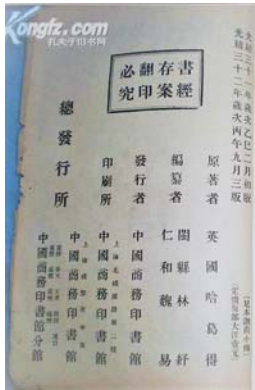 Kongfz.com
孔夫子旧书网
光緒三十一年歲次乙巳二月初版
光緒三十二年歲次丙午九月三版
書經存案翻印必究
原著者 英國哈葛得
編纂者 閩縣林紓
仁和魏易
發行者 中國商務印書館
印刷所 中國商務印書館
總發行所 中國商務印書館
中國商務印書館分館